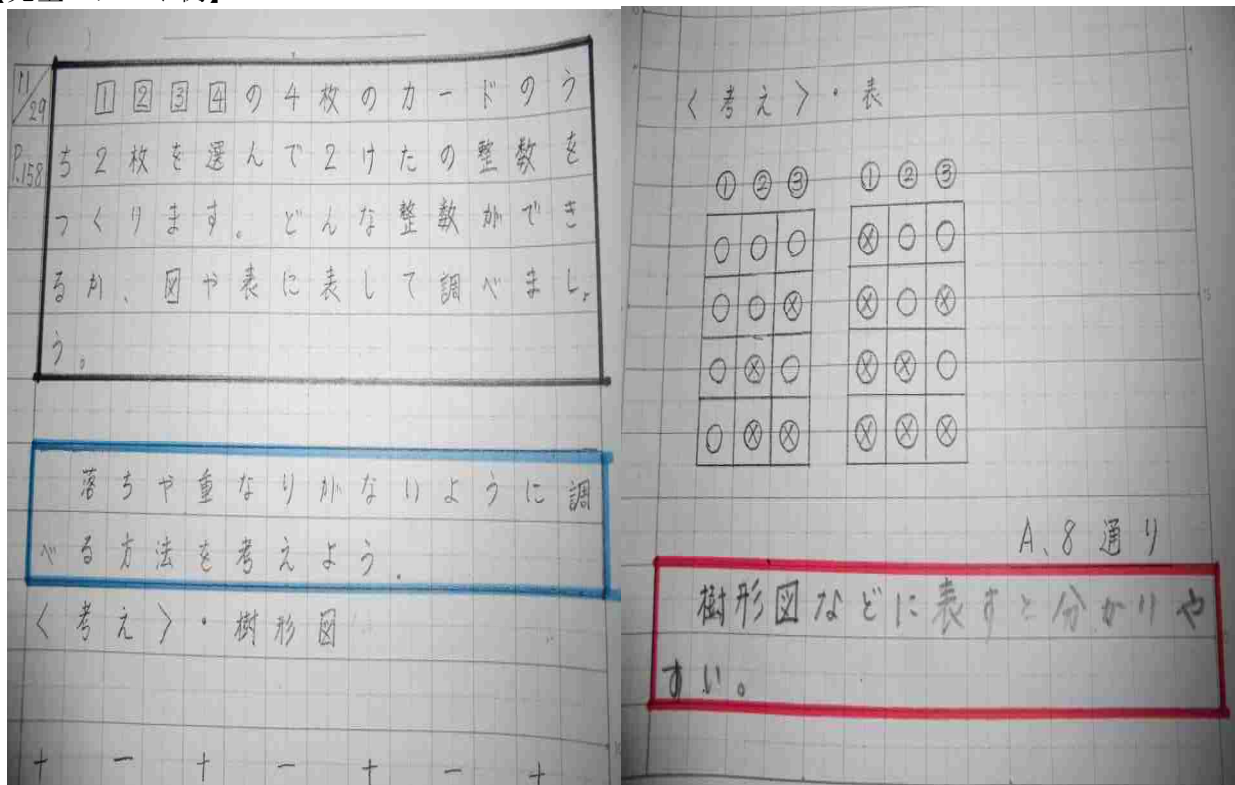 11/29
P.158
1 2 3 4 の4枚のカードのう
ち2枚を選んで2けたの整数を
つくります。どんな整数ができ
るか、図や表に表して調べまし
う。
落ちや重なりがないように調
べる方法を考えよう.
〈考え〉・樹形図
十 一 十 一 十 一 十
〈考え〉・表
① ② ③ ① ② ③
A、8通り
樹形図などに表すと分かりや
すい。